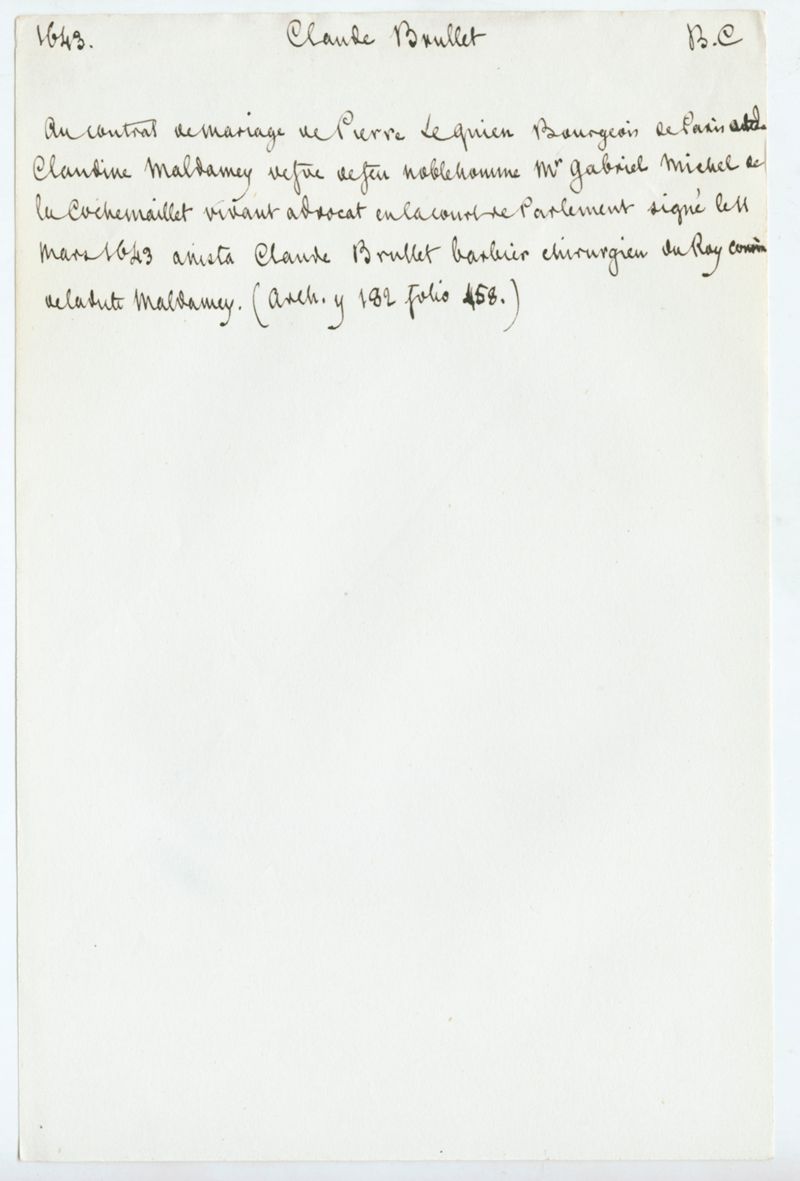 1643. Claude Brullet B.C
Au contrat de mariage de Pierre Lequien Bourgeois de Paris et de
Claudine Maldamey vefve de feu noble homme Mr Gabriel Michel de
la Cochemaillet vivant advocat en la court de Parlement signé le 11
Mars 1643 assista Claude Brullet barbier chirurgien du Roy cousin
de ladite Maldamey. (Arch. y 182 folio 458.)